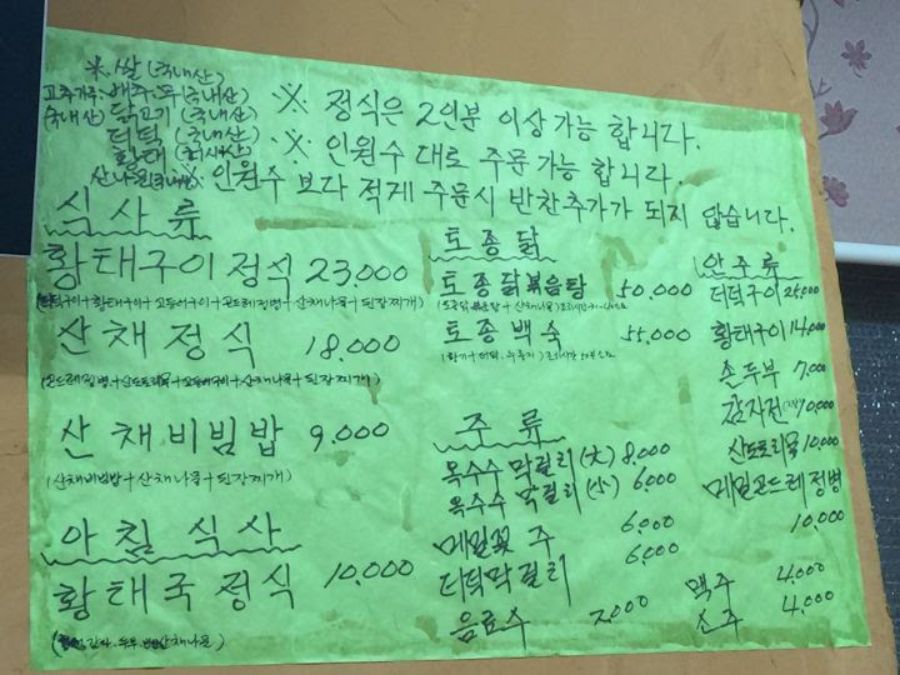 ※ 쌀 (국내산)
고추가루: 배추.무 (국내산)
(국내산) 닭고기 (국내산)
더덕 (국내산)
황태 (러시아산)
산나물(국내산)
※ 정식은 2인분 이상 가능 합니다.
※ 인원수 대로 주문 가능 합니다.
※ 인원수 보다 적게 주문시 반찬추가가 되지 않습니다.
식사류
황태구이정식 23,000
(더덕구이+황태구이+고등어구이+곤드레전병+산채나물+된장찌개)
산채정식 18,000
(곤드레전병+산도토리묵+고등어구이+산채나물+된장찌개)
산채비빔밥 9,000
(산채비빔밥+산채나물+된장찌개)
아침식사
황태국정식 10,000
토종닭
토종닭볶음탕 50,000
토종백숙 55,000
주류
옥수수 막걸리 (大) 8,000
옥수수 막걸리 (小) 6,000
메밀꽃 주 6,000
더덕막걸리 6,000
음료수 2,000
안주류
더덕구이 25,000
황태구이 14,000
촌두부 7,000
감자전 10,000
산도토리묵 10,000
메밀곤드레전병
10,000
맥주 4,000
소주 4,000